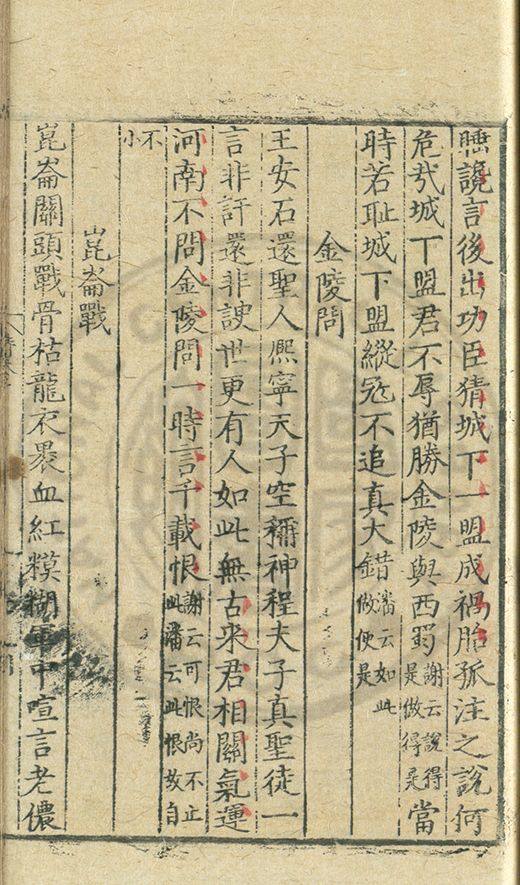 讒言後出功臣猜城下一盟成禍胎孤注之說何
危㢤城丁盟君不辱猶勝金陵與西蜀謝云說得是做得是當
時若恥城下盟縱寇不追真大錯潘云如此做便是
金陵問
王安石還聖人熈寧天子空稱神程夫子真聖徒一
言非訐還非諛世更有人如此無古來君相關氣運
河南不問金陵問一時言千載恨謝云可恨尚不止此潘云此恨故自
不小
崑崙戰
崑崙關頭戰骨枯龍衣褁血紅糢糊軍中喧言老儂